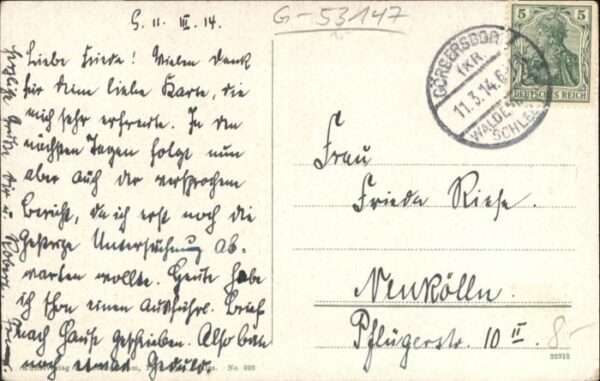 G. 11. III. 14.
Liebe Frieda! Vielen Dank
für deine liebe Karte, die
mich sehr erfreute. In den
nächsten Tagen folgt nun
aber auch der versprochene
Bericht, da ich erst noch die
gestrige Untersuchung ab-
warten wollte. Heute habe
ich schon einen ausführl. Brief
nach Hause geschrieben. Also bitte
noch etwas Geduld.
Herzliche Grüße dir u. Robert.
G-53147
GÖRBERSDORF
(KR.
11.3.14.6-
WALDE
SCHLES
5 5
DEUTSCHES REICH
Frau
Frieda Riese.
Neukölln.
Pflügerstr. 10 II.
8-
No. 492